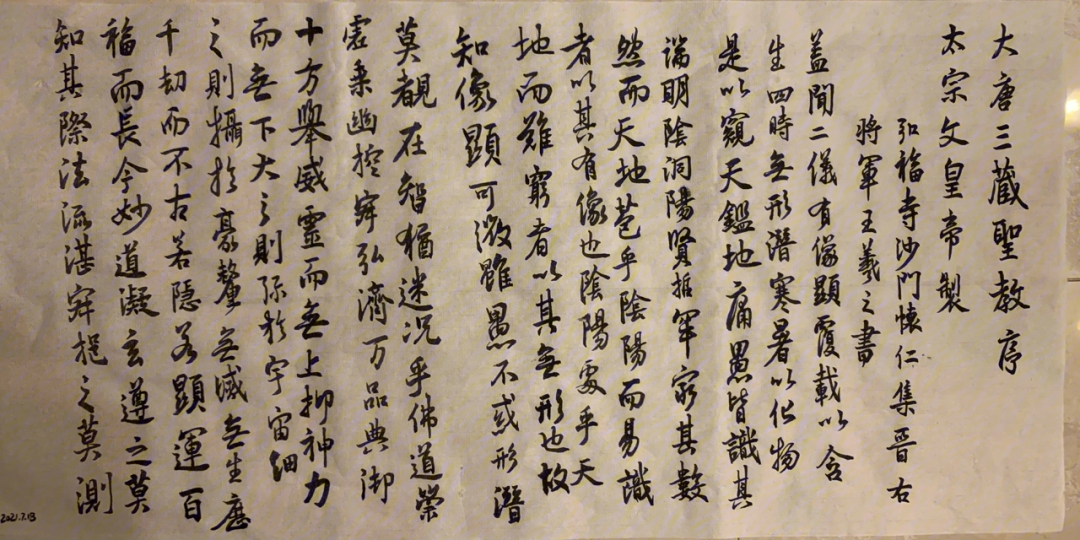 大唐三藏聖教序
太宗文皇帝製
弘福寺沙門懷仁集晉右
將軍王羲之書
蓋聞二儀有像顯覆載以含
生四時無形潛寒暑以化物
是以窺天鑑地庸愚皆識其
端明陰洞陽賢哲罕窮其數
然而天地苞乎陰陽而易識
者以其有像也陰陽處乎天
地而難窮者以其無形也故
知像顯可徵雖愚不惑形潛
莫覩在智猶迷況乎佛道崇
虛乘幽控寂弘濟万品典御
十方舉威靈而無上抑神力
而無下大之則彌於宇宙細
之則攝於豪釐無滅無生歷
千劫而不古若隱若顯運百
福而長今妙道凝玄遵之莫
知其際法流湛寂挹之莫測
2021.7.13